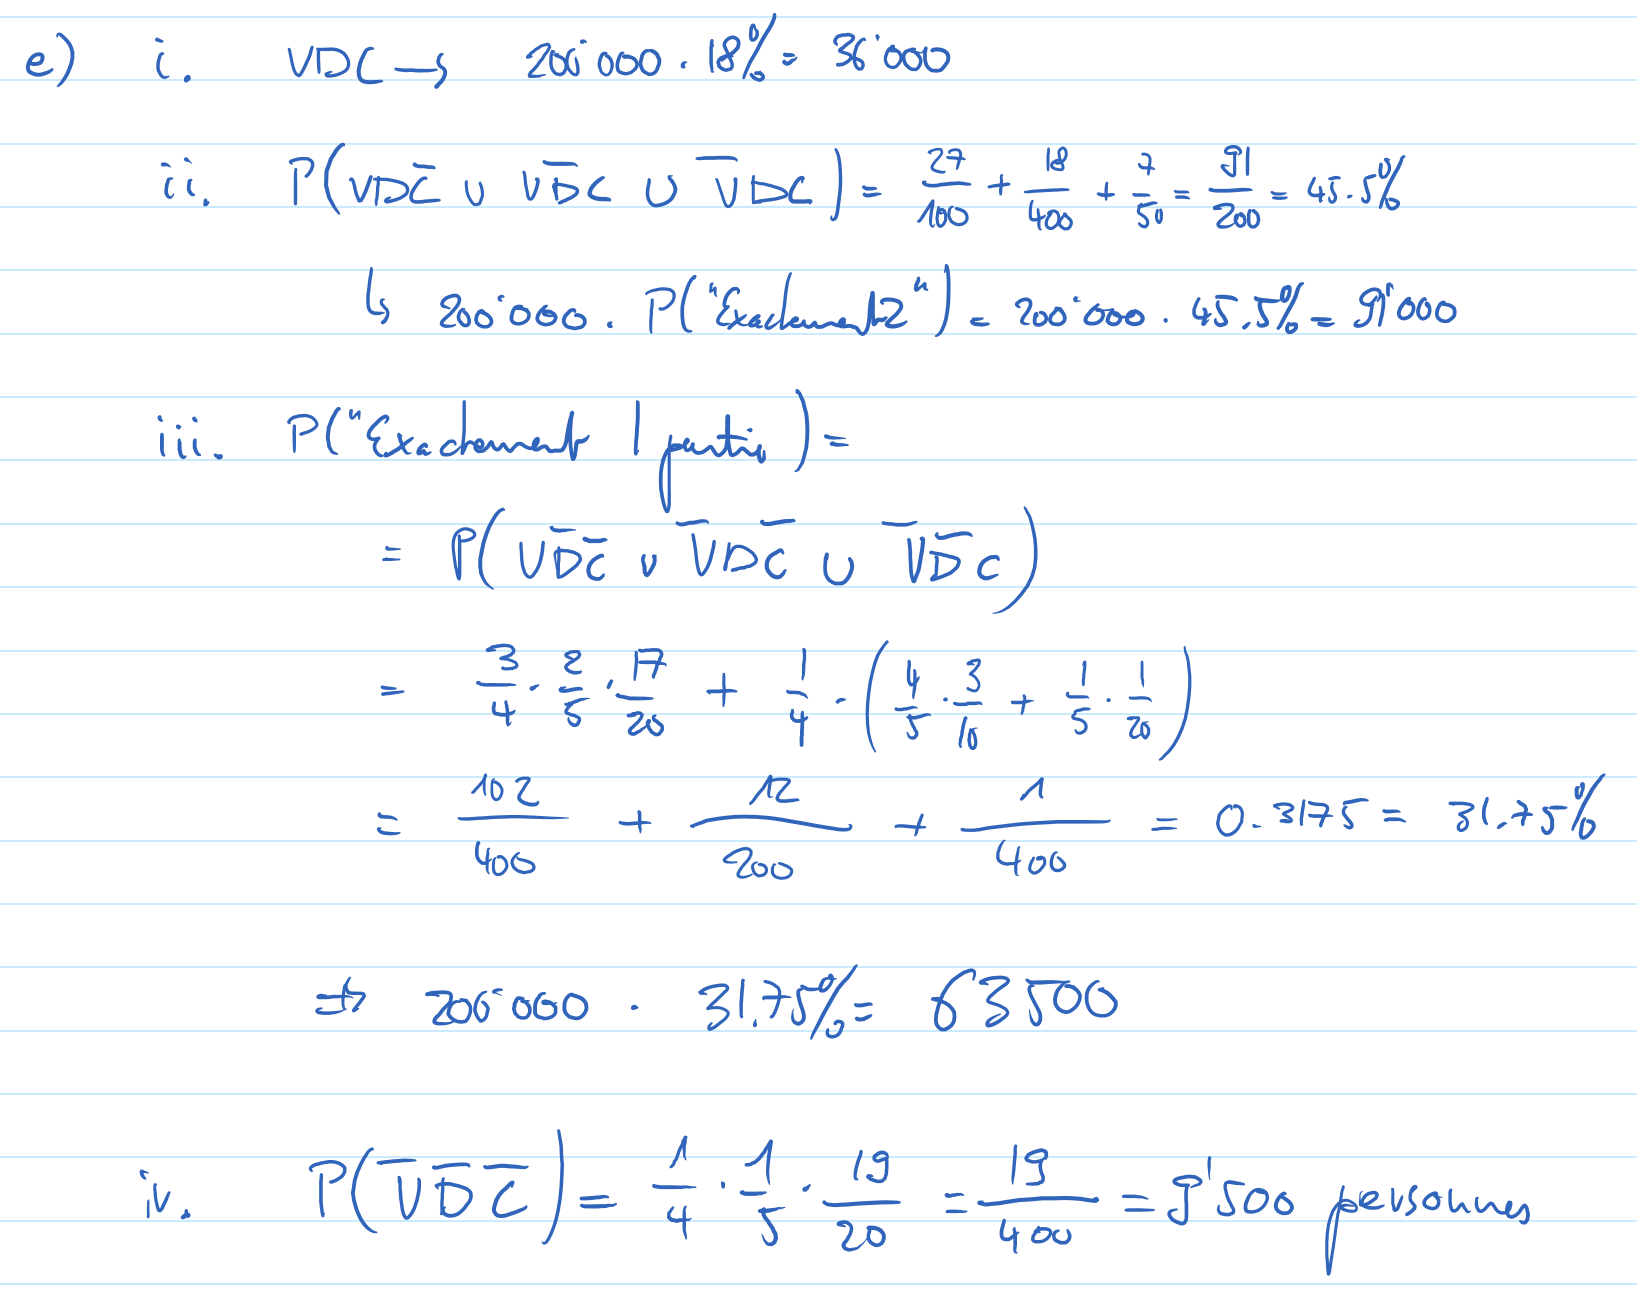 e) i. VDC → 200'000 · 18% = 36'000
ii. P(VDC̅ ∪ VD̅C ∪ V̅DC) = 27/100 + 18/400 + 7/50 = 91/200 = 45.5%
↳ 200'000 · P("Exactement 2") = 200'000 · 45.5% = 91'000
iii. P("Exactement 1 parti) =
= P(VD̅C̅ ∪ V̅DC̅ ∪ V̅D̅C)
= 3/4 · 2/5 · 17/20 + 1/4 · (4/5 · 3/10 + 1/5 · 1/20)
= 102/400 + 12/200 + 1/400 = 0.3175 = 31.75%
⇒ 200'000 · 31.75% = 63500
iv. P(V̅D̅C̅) = 1/4 · 1/5 · 19/20 = 19/400 = 9'500 personnes